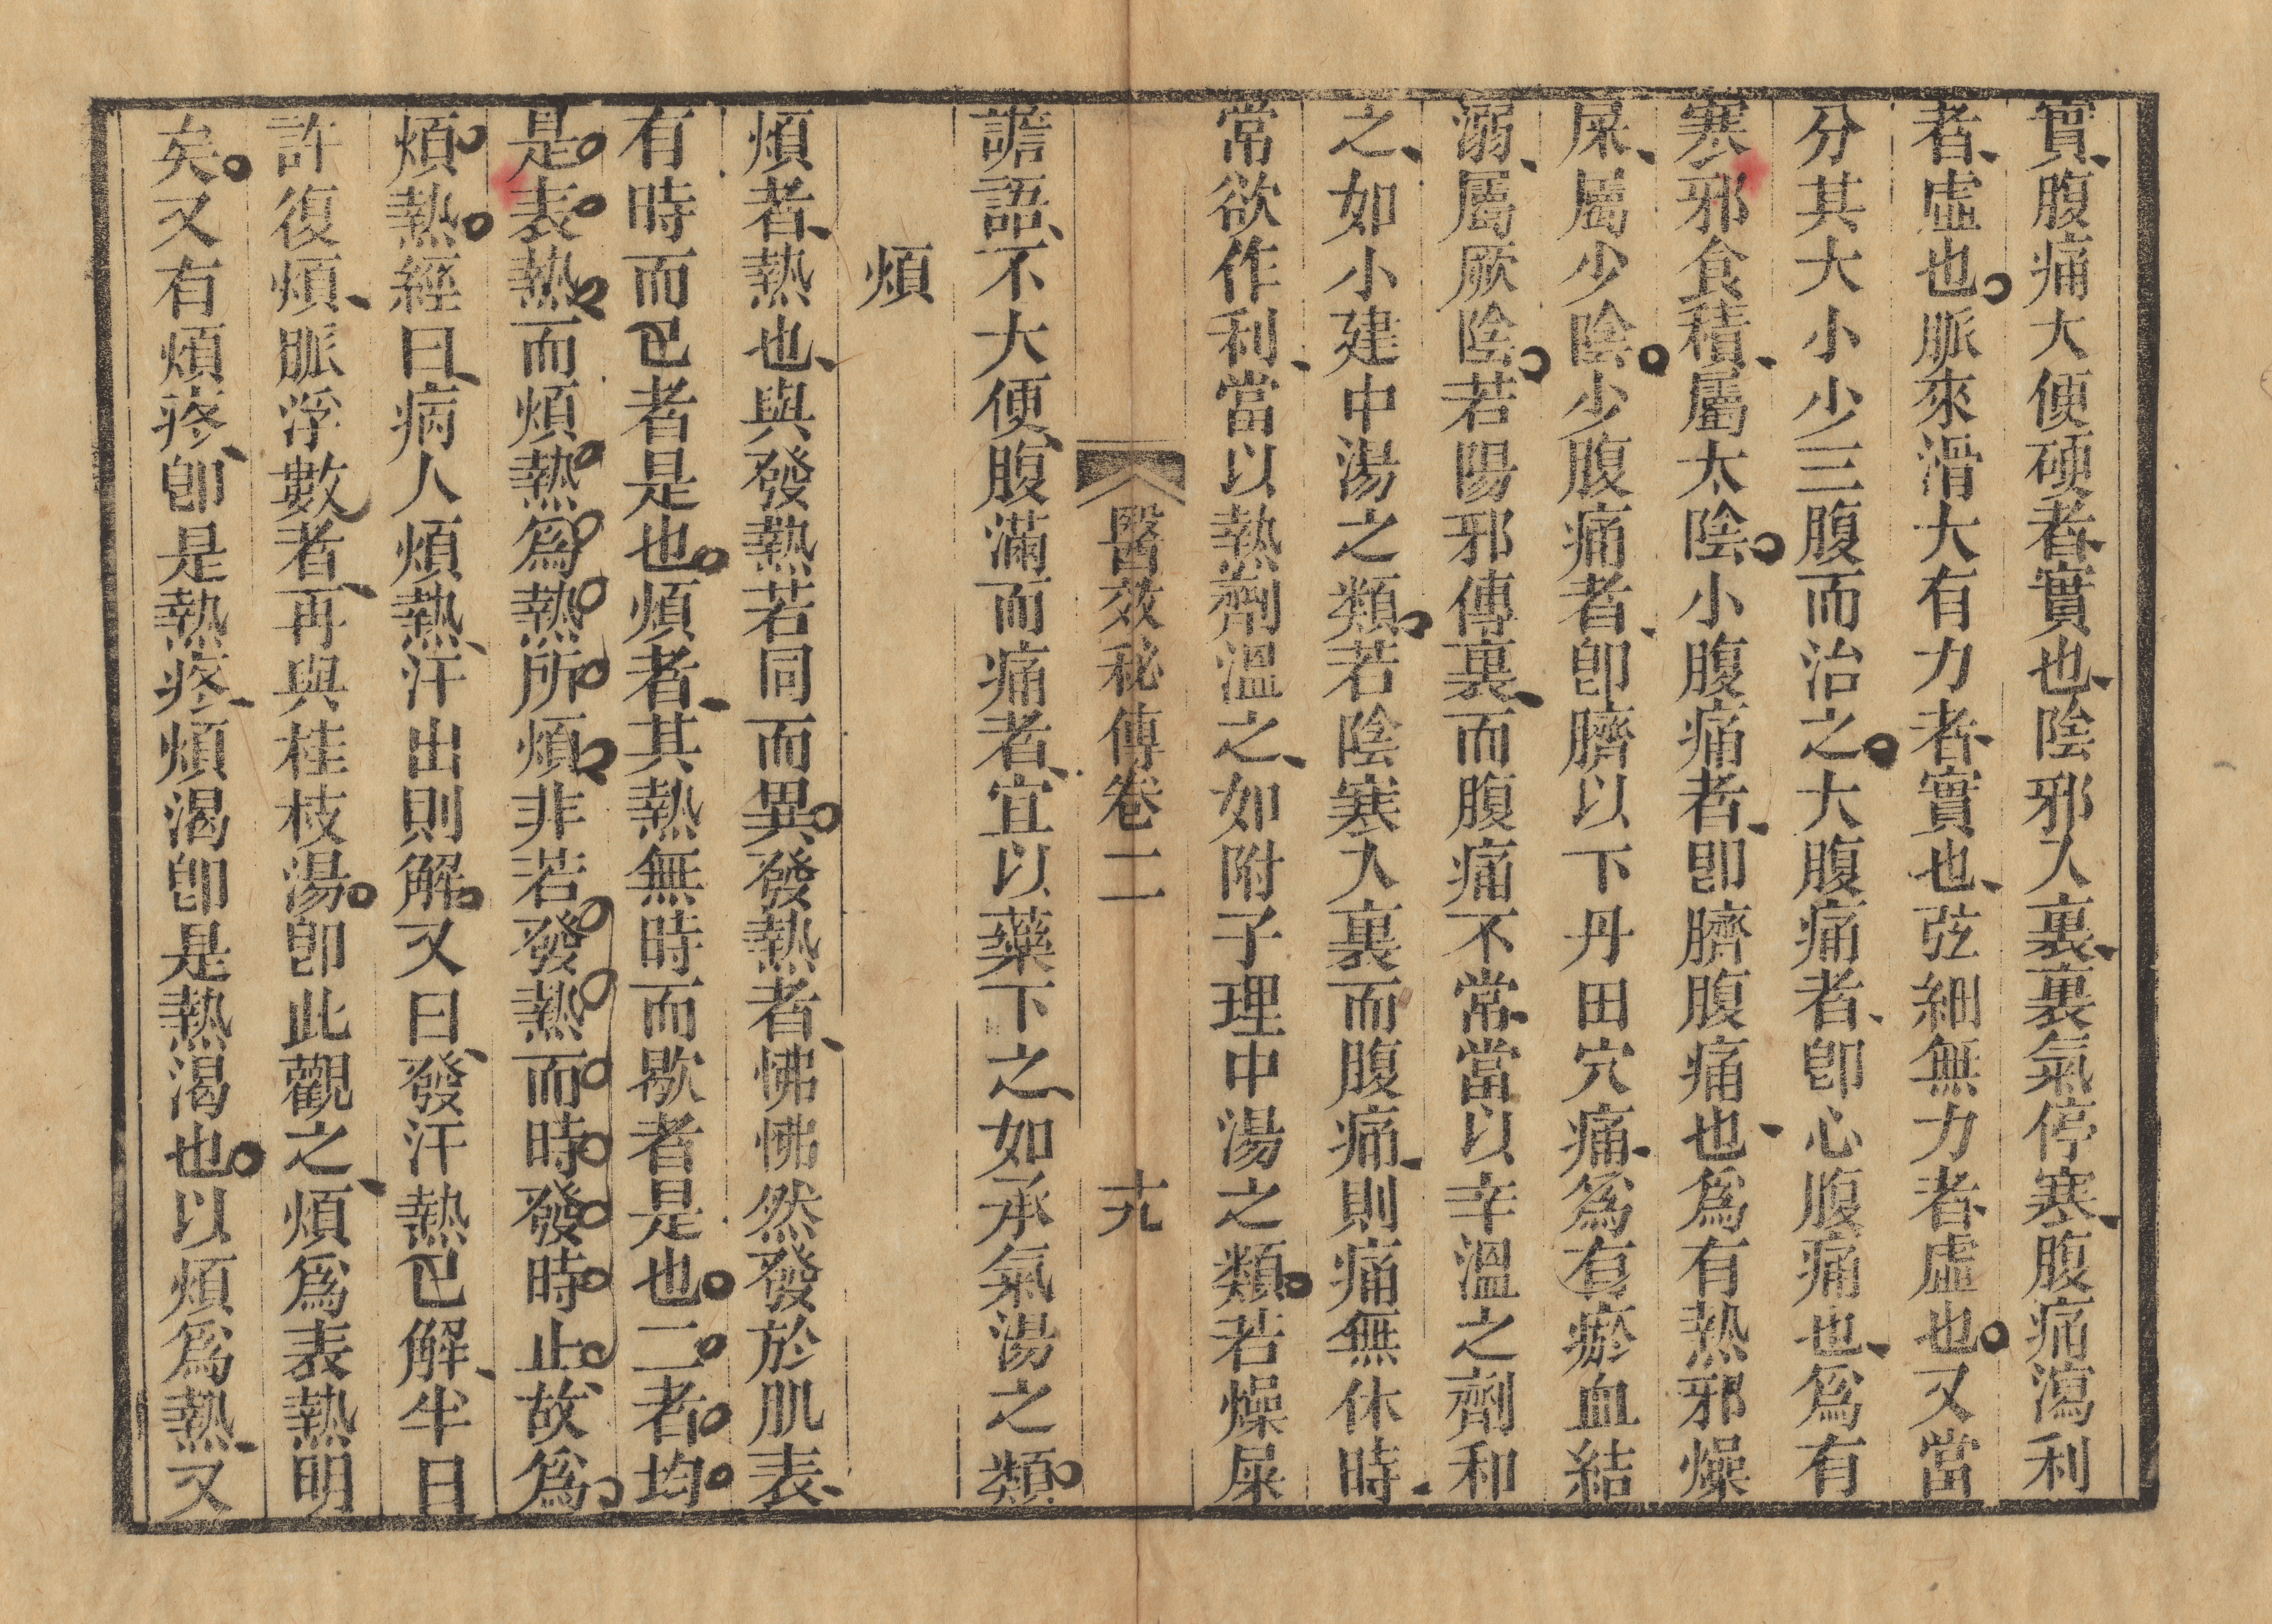 實腹痛大便硬者實也陰邪入裏裏氣停寒腹痛瀉利
者虛也脈來滑大有力者實也弦細無力者虛也又當
分其大小少三腹而治之大腹痛者卽心腹痛也爲有
寒邪食積屬太陰小腹痛者卽臍腹痛也爲有熱邪燥
屎屬少陰少腹痛者卽臍以下丹田穴痛爲有瘀血結
溺屬厥陰若陽邪傳裏而腹痛不常當以辛溫之劑和
之如小建中湯之類若陰寒入裏而腹痛則痛無休時
常欲作利當以熱劑溫之如附子理中湯之類若燥屎
醫效秘傳卷二　十九
譫語不大便腹滿而痛者宜以藥下之如承氣湯之類
煩
煩者熱也與發熱若同而異發熱者怫怫然發於肌表
有時而已者是也煩者其熱無時而歇者是也二者均
是表熱而煩熱爲熱所煩非若發熱而時發時止故爲
煩熱經曰病人煩熱汗出則解又曰發汗熱已解半日
許復煩脈浮數者再與桂枝湯卽此觀之煩爲表熱明
矣又有煩疼卽是熱疼煩渴卽是熱渴也以煩爲熱又